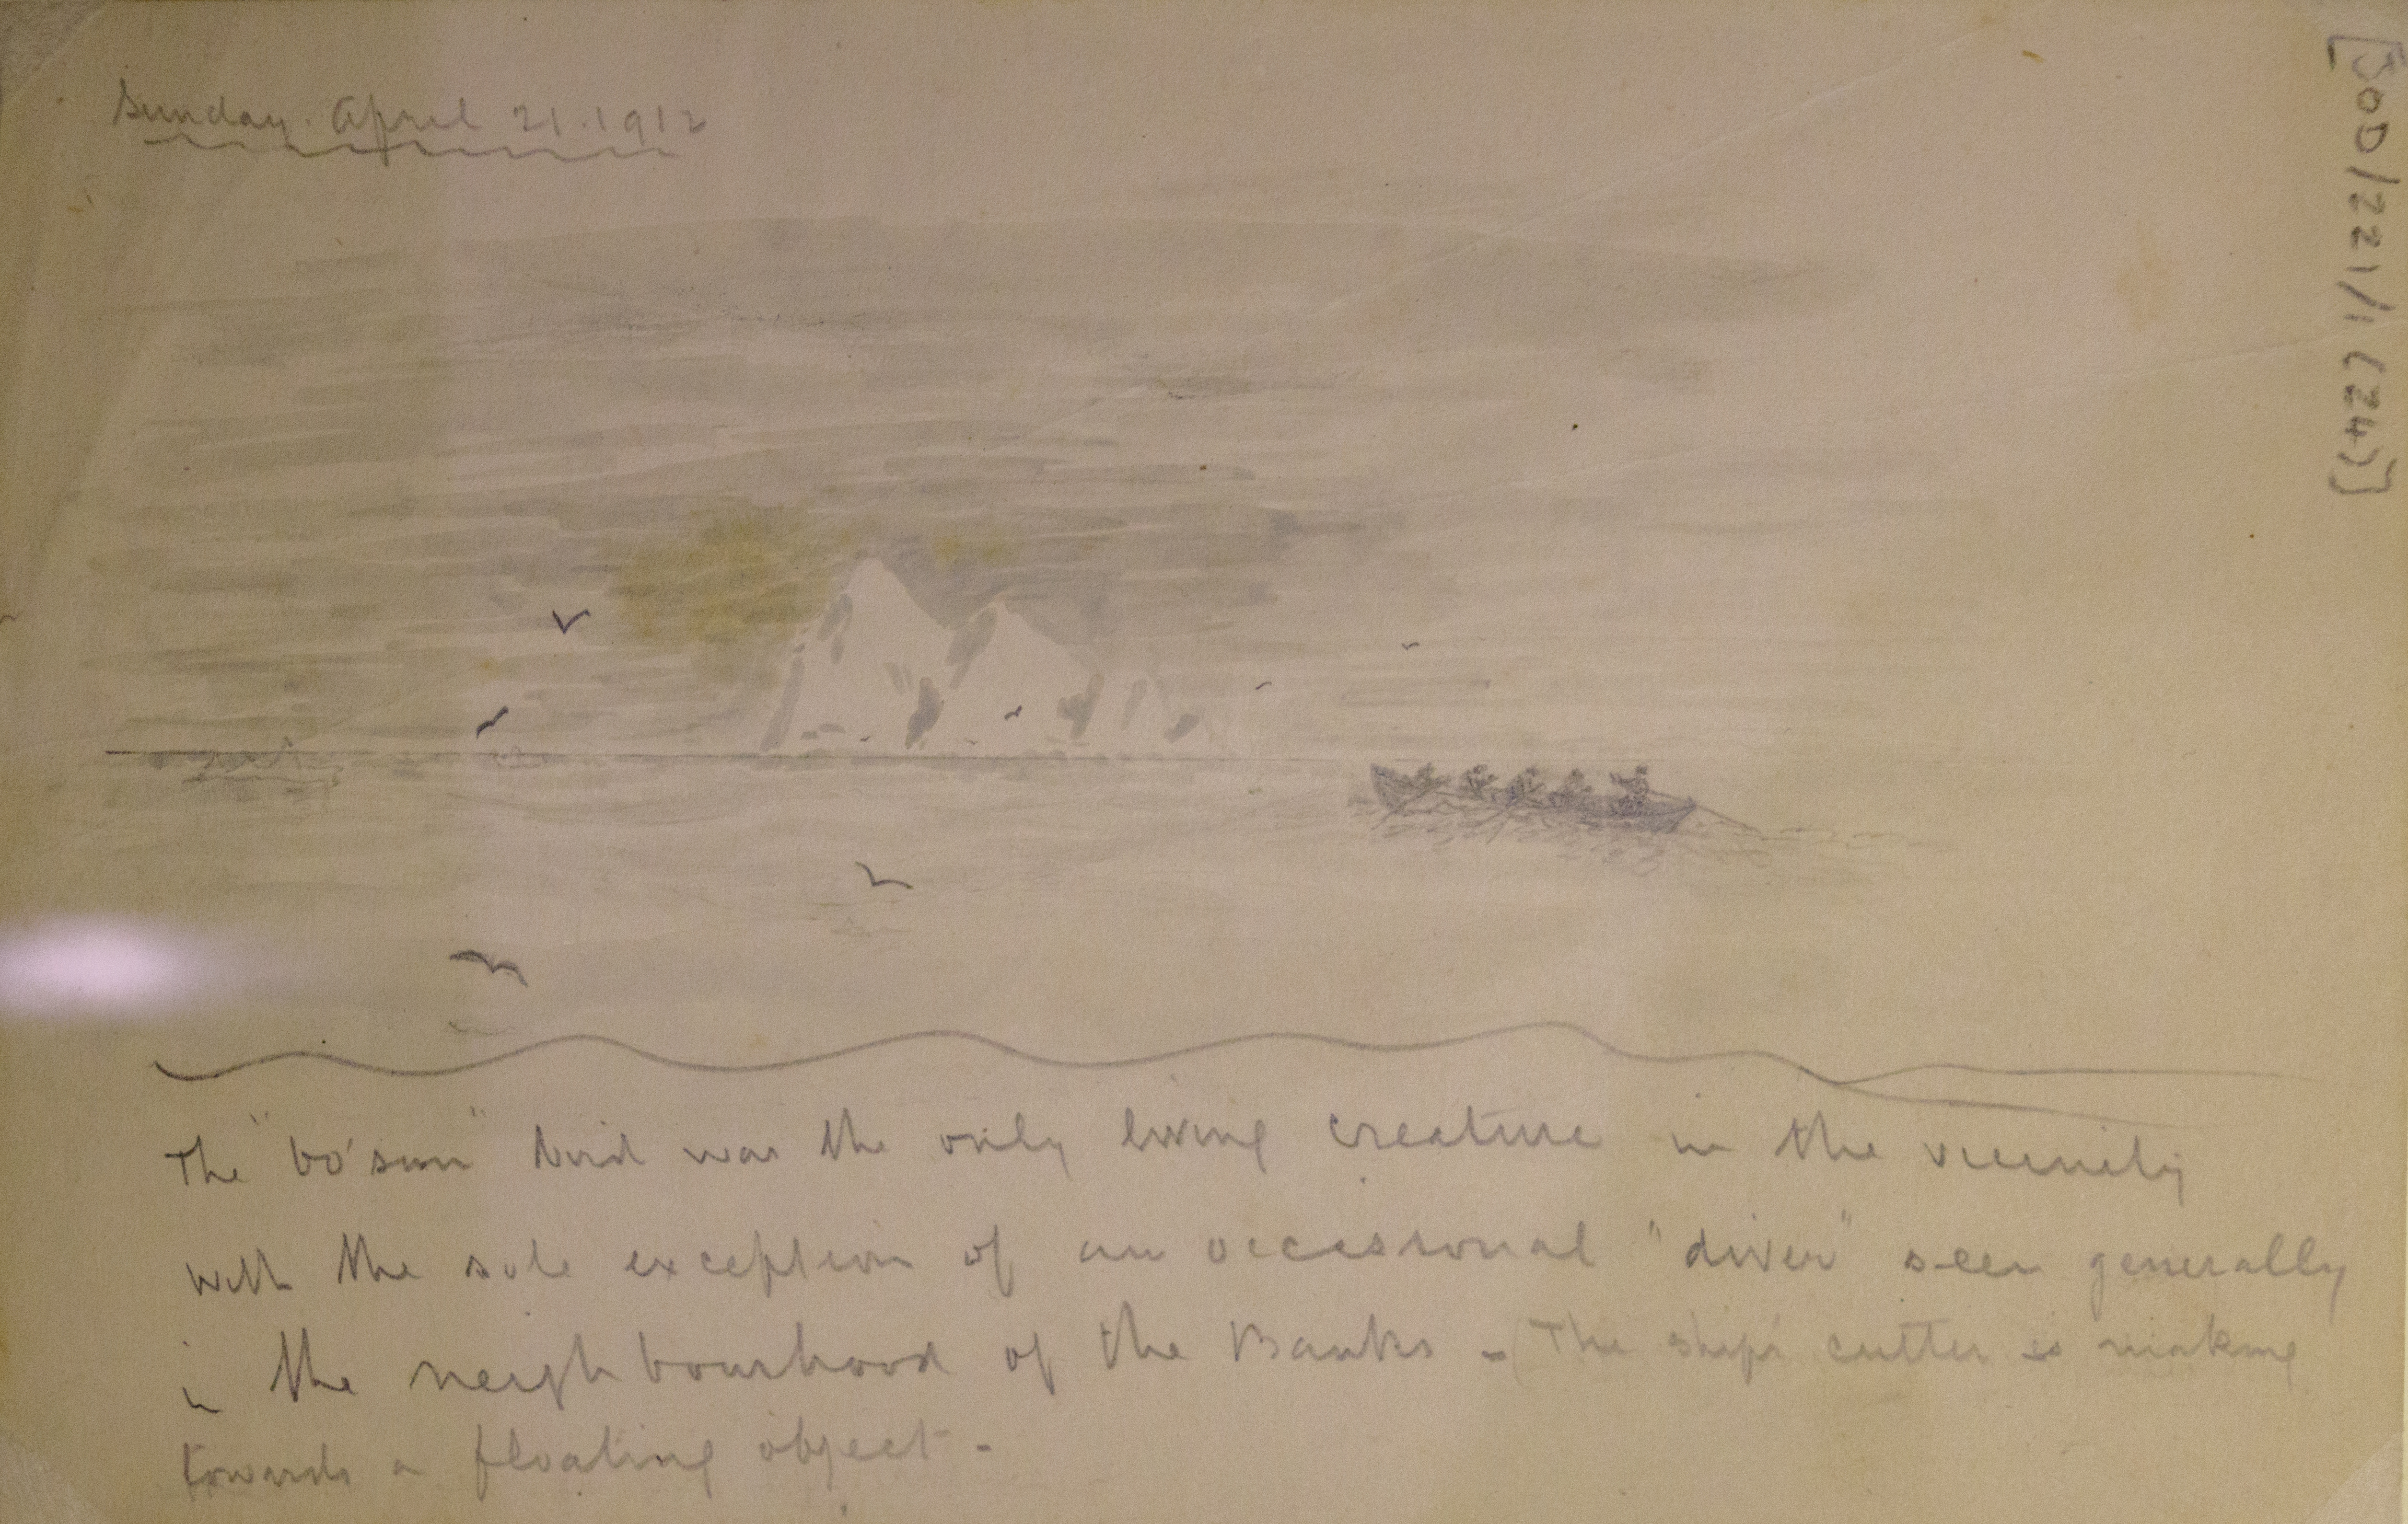 Sunday. April 21. 1912
[SOD/221/1 (24)]
The "bo'sun" bird was the only living creature in the vicinity
with the sole exception of an occasional "diver" seen generally
in the neighbourhood of the Banks - (The ship's cutter is making
towards a floating object -